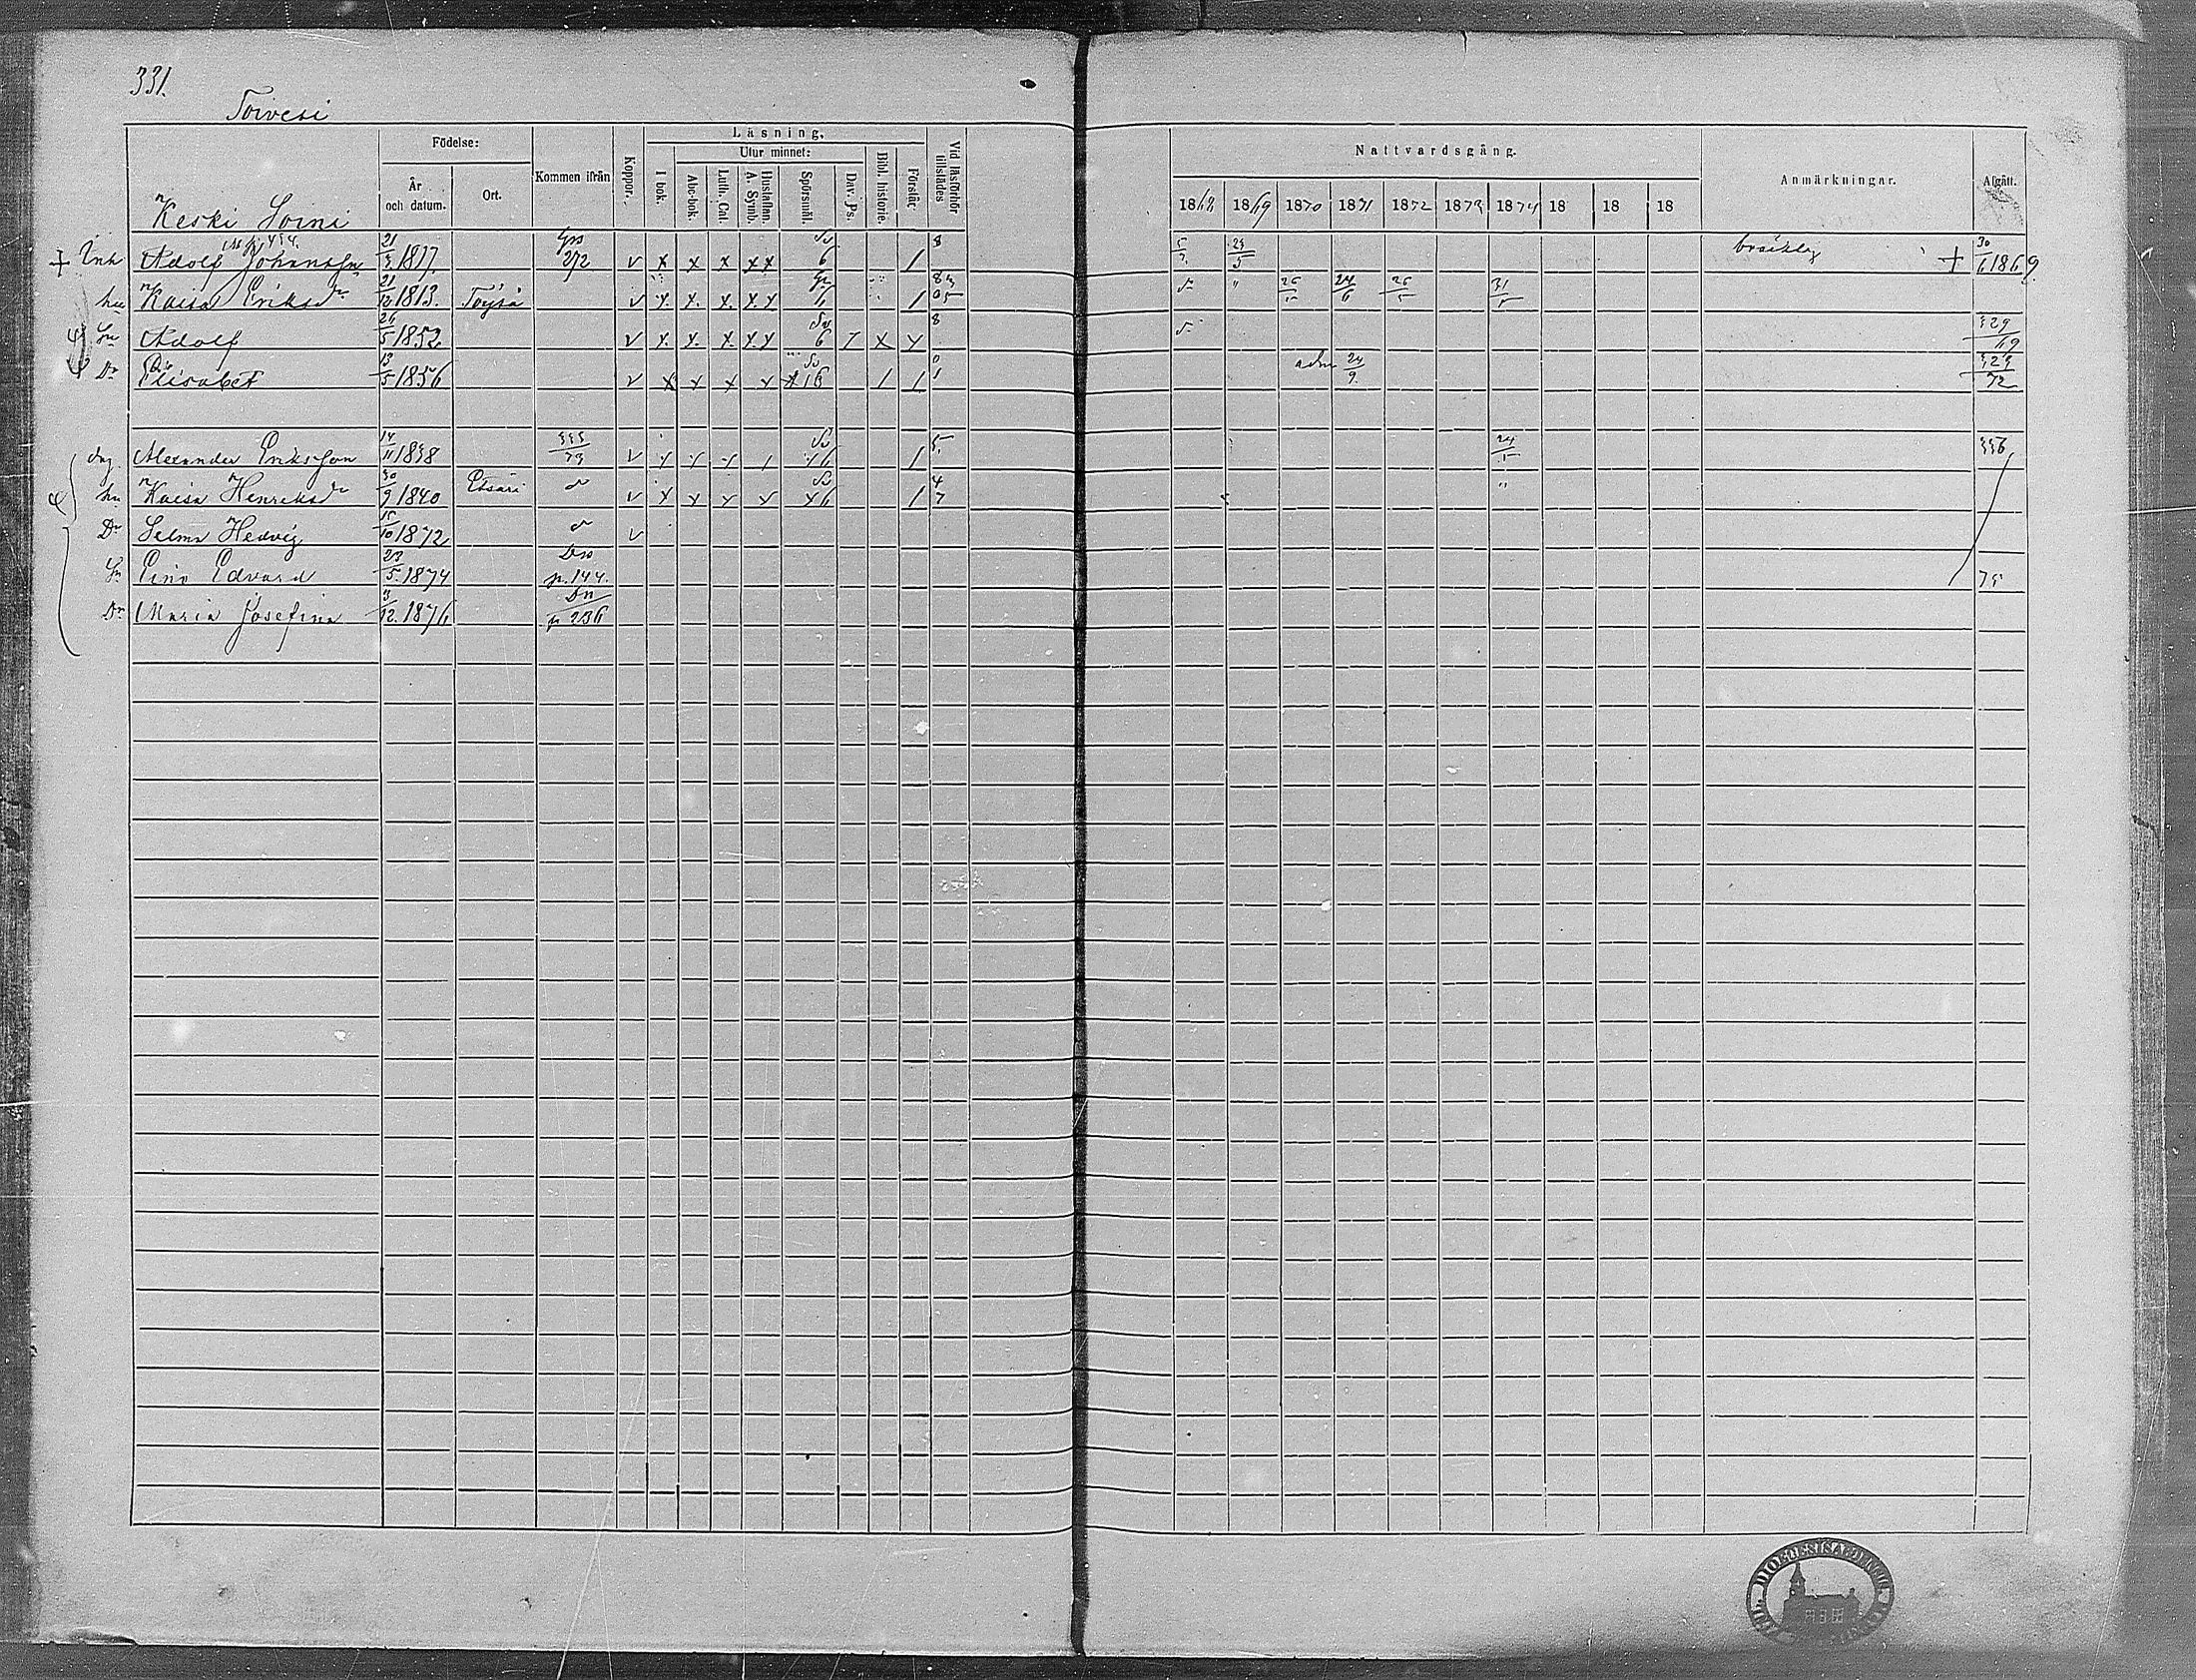 331.
Toivesi
Födelse:
Läsning.
Utur minnet:
År och datum.
Ort.
Kommen ifrån
Koppor.
I bok.
Abc-bok.
Luth. Cat.
Hustaflan A. Symb.
Spörsmål.
Dav. Ps.
Bibl. historie.
Förstår.
Vid läsförhör tillstädes
Nattvardsgång.
Anmärkningar.
Afgått.
1868 1869 1870 1871 1872 1873 1874 18 18 18
Keski Soini
Inh Adolf Johansson 21/3 1817. 272 v x x x x x 6 / 8 5/7 23/5 bräcklig + 30/6 1869
hu Kaisa Eriksdr 21/12 1813. Töysä v x x x x x 6 / 24/6 26/5 31/5
Sn Adolf 26/5 1852 v x x x x x 6 7 x x 8 329/69
Dr Elisabet 13/5 1856 v x x x x x 6 / / adm 24/9 329/72
Alexander Eriksson 14/11 1838 335/73 v 6 / 5 24/5 336
hu Kaisa Henriksdr 30/9 1840 Etsäri v x x x x x 6 / 4 7 "
Dr Selma Hedvig 15/10 1872 v
Sn Eino Edvard 22/5 1874 Dro p. 144. 75
Dr Maria Josefina 3/12. 1876 p 236